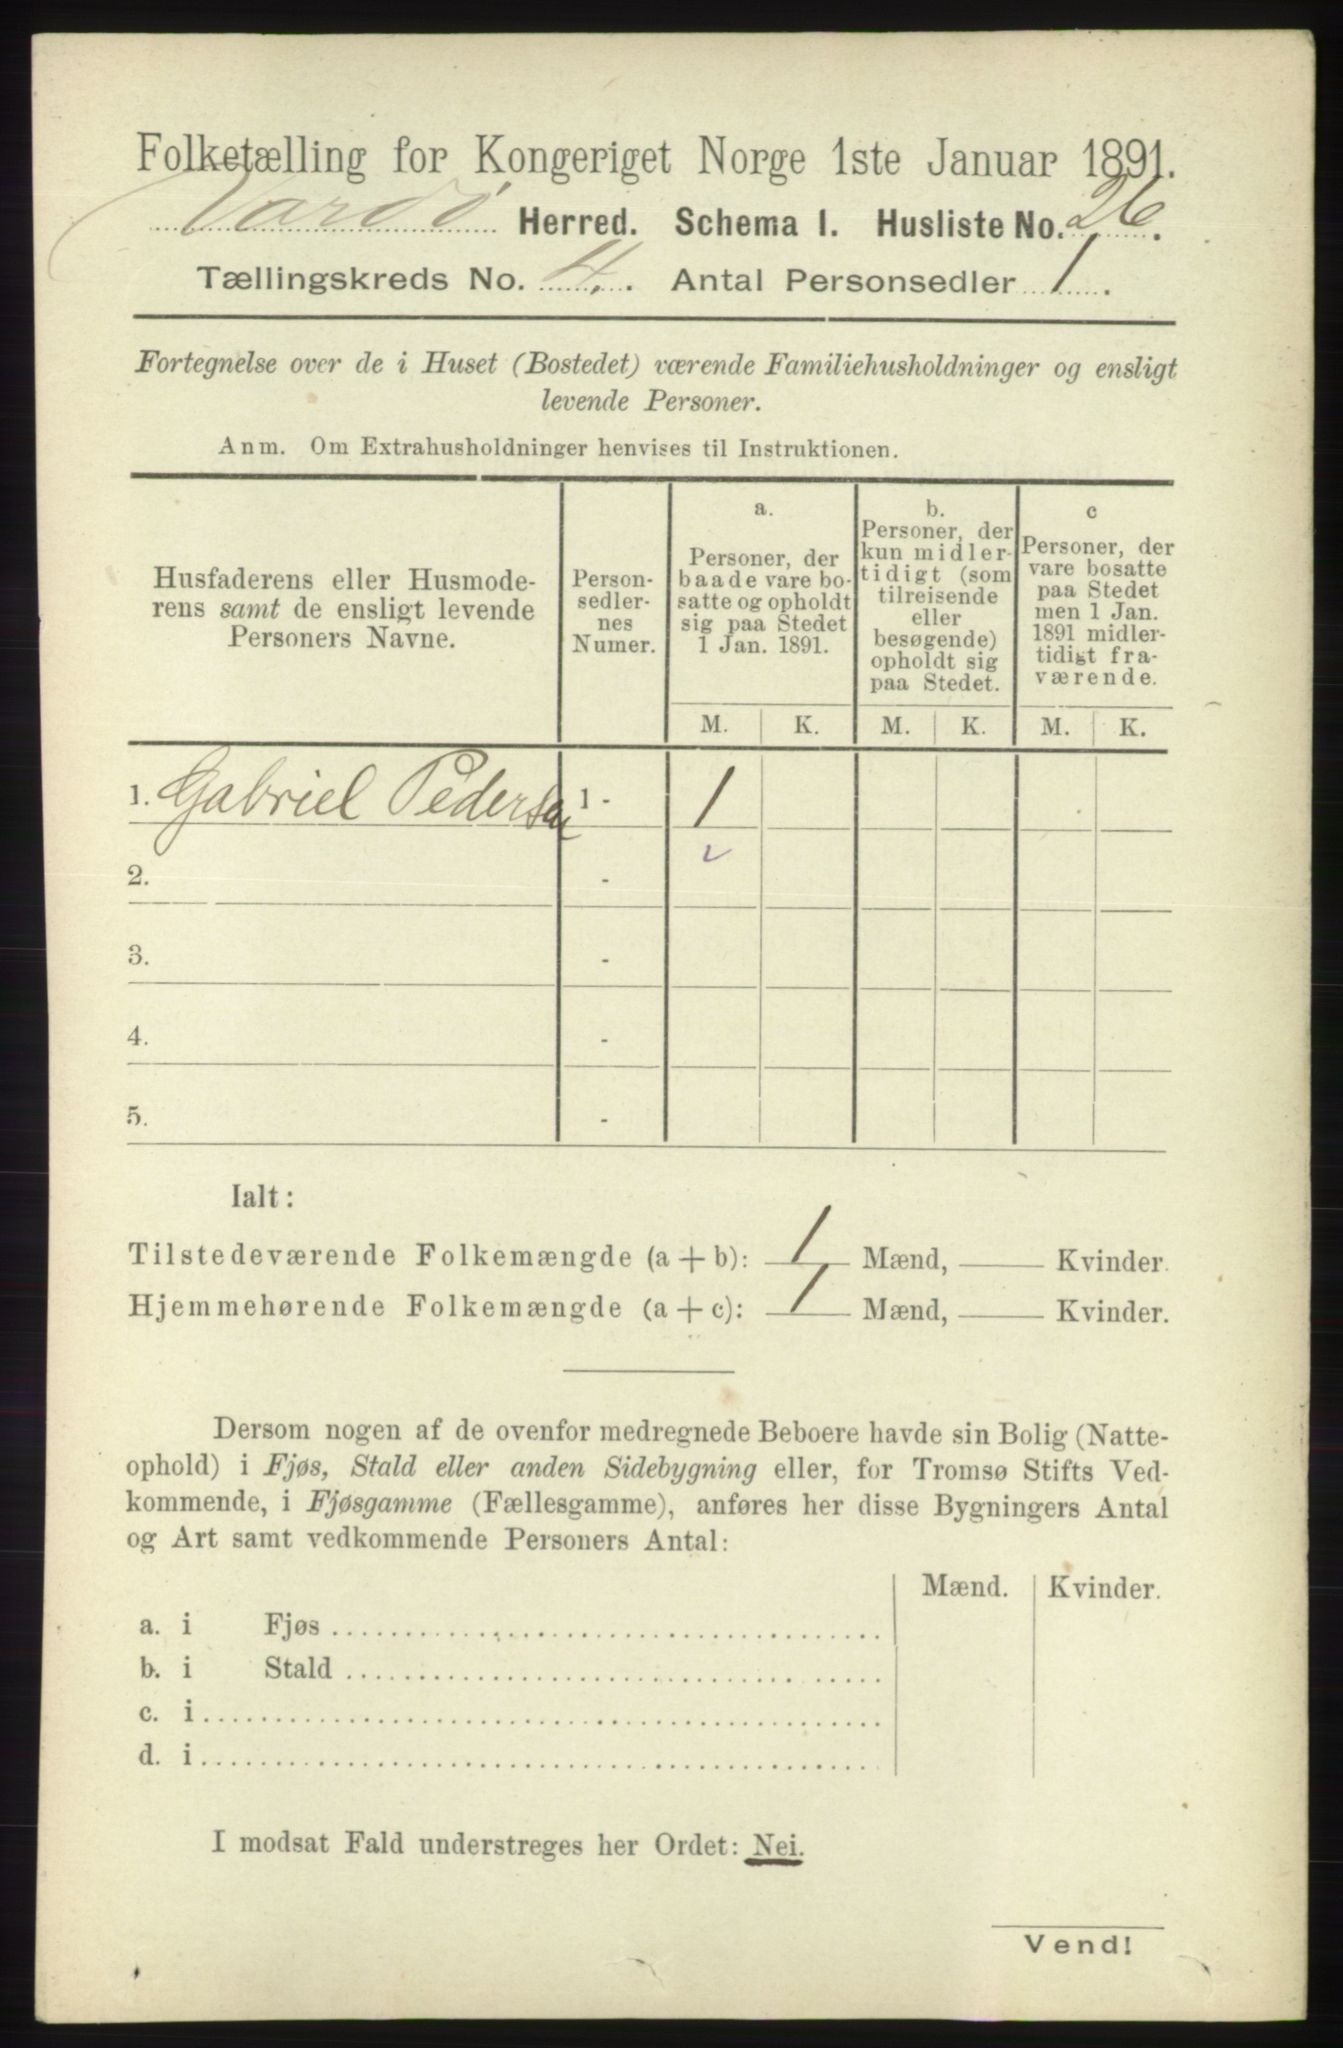 Folketælling for Kongeriget Norge 1ste Januar 1891.
Vardø Herred. Schema I. Husliste No. 26.
Tællingskreds No. 4. Antal Personsedler 1.
Fortegnelse over de i Huset (Bostedet) værende Familiehusholdninger og ensligt
levende Personer.
Anm. Om Extrahusholdninger henvises til Instruktionen.
Husfaderens eller Husmode-
rens samt de ensligt levende
Personers Navne.
Person-
sedler-
nes
Numer.
a.
Personer, der
baade vare bo-
satte og opholdt
sig paa Stedet
1 Jan. 1891.
b.
Personer, der
kun midler-
tidigt (som
tilreisende
eller
besøgende)
opholdt sig
paa Stedet.
c
Personer, der
vare bosatte
paa Stedet
men 1 Jan.
1891 midler-
tidigt fra-
værende.
M. K. M. K. M. K.
1. Gabriel Pedersen 1 - 1
2. -
3. -
4. -
5. -
Ialt:
Tilstedeværende Folkemængde (a + b): 1 Mænd, Kvinder.
Hjemmehørende Folkemængde (a + c): 1 Mænd, Kvinder.
Dersom nogen af de ovenfor medregnede Beboere havde sin Bolig (Natte-
ophold) i Fjøs, Stald eller anden Sidebygning eller, for Tromsø Stifts Ved-
kommende, i Fjøsgamme (Fællesgamme), anføres her disse Bygningers Antal
og Art samt vedkommende Personers Antal:
Mænd. Kvinder.
a. i Fjøs
b. i Stald
c. i
d. i
I modsat Fald understreges her Ordet: Nei.
Vend!